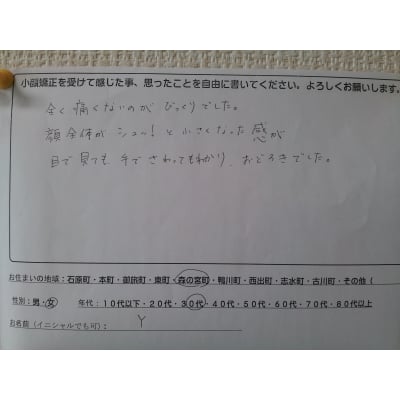 小顔矯正を受けて感じた事、思ったことを自由に書いてください。よろしくお願いします。
全く痛くないのがびっくりでした。
顔全体がシュッ!と小さくなった感が
目で見ても、手でさわってもわかり、おどろきでした。
お住まいの地域：石原町・本町・御旅町・東町・森の宮町・鴨川町・西出町・志水町・古川町・その他（
性別：男・女　年代：10代以下・20代・30代・40代・50代・60代・70代・80代以上
お名前（イニシャルでも可）：Y